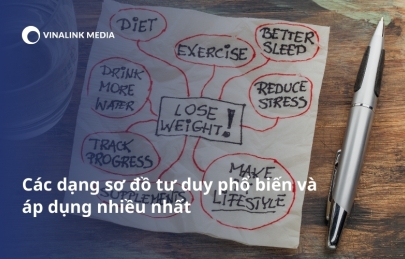 VINALINK MEDIA
DIET
EXERCISE
BETTER
SLEEP
DRINK
MORE
WATER
REDUCE
STRESS
LOSE
WEIGHT!
TRACK
PROGRESS
MAKE
LIFESTYLE
SUPPLEMENTS
Các dạng sơ đồ tư duy phổ biến và
áp dụng nhiều nhất